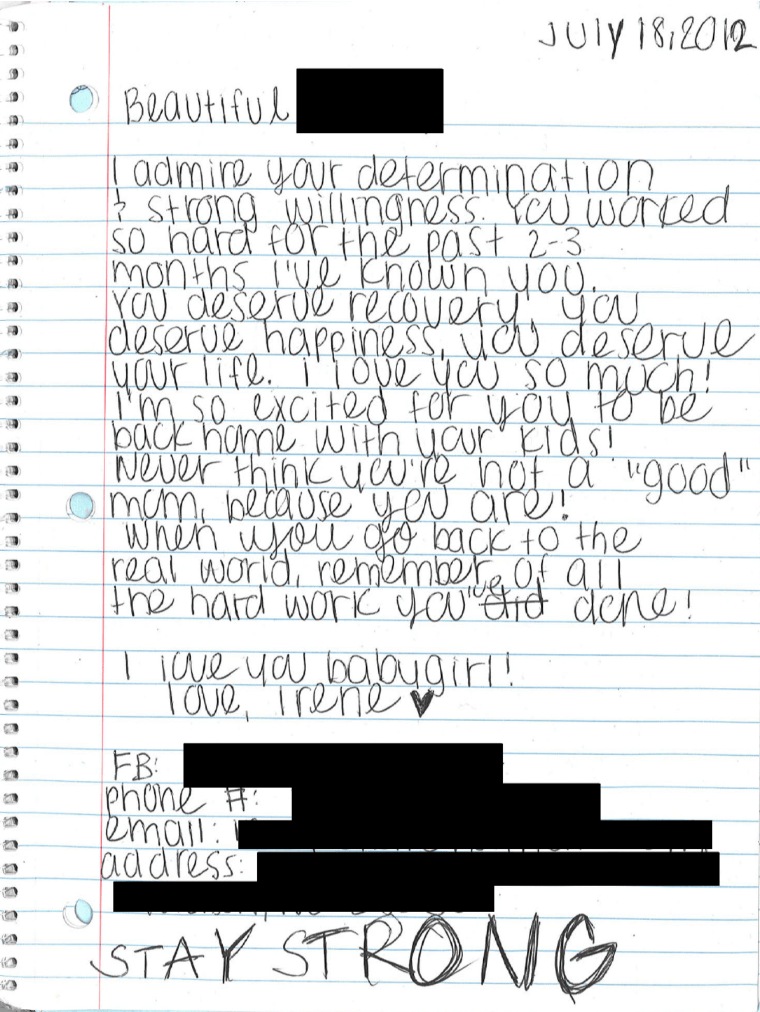 JULY 18, 2012
Beautiful
I admire your determination
& strong willingness. You worked
so hard for the past 2-3
months I've known you.
You deserve recovery, you
deserve happiness, you deserve
your life. I love you so much!
I'm so excited for you to be
back home with your kids!
Never think you're not a "good"
mom, because you are!
When you go back to the
real world, remember of all
the hard work you've did done!
I love you babygirl!
love, Irene ♥
FB:
phone #:
email:
address:
STAY STRONG